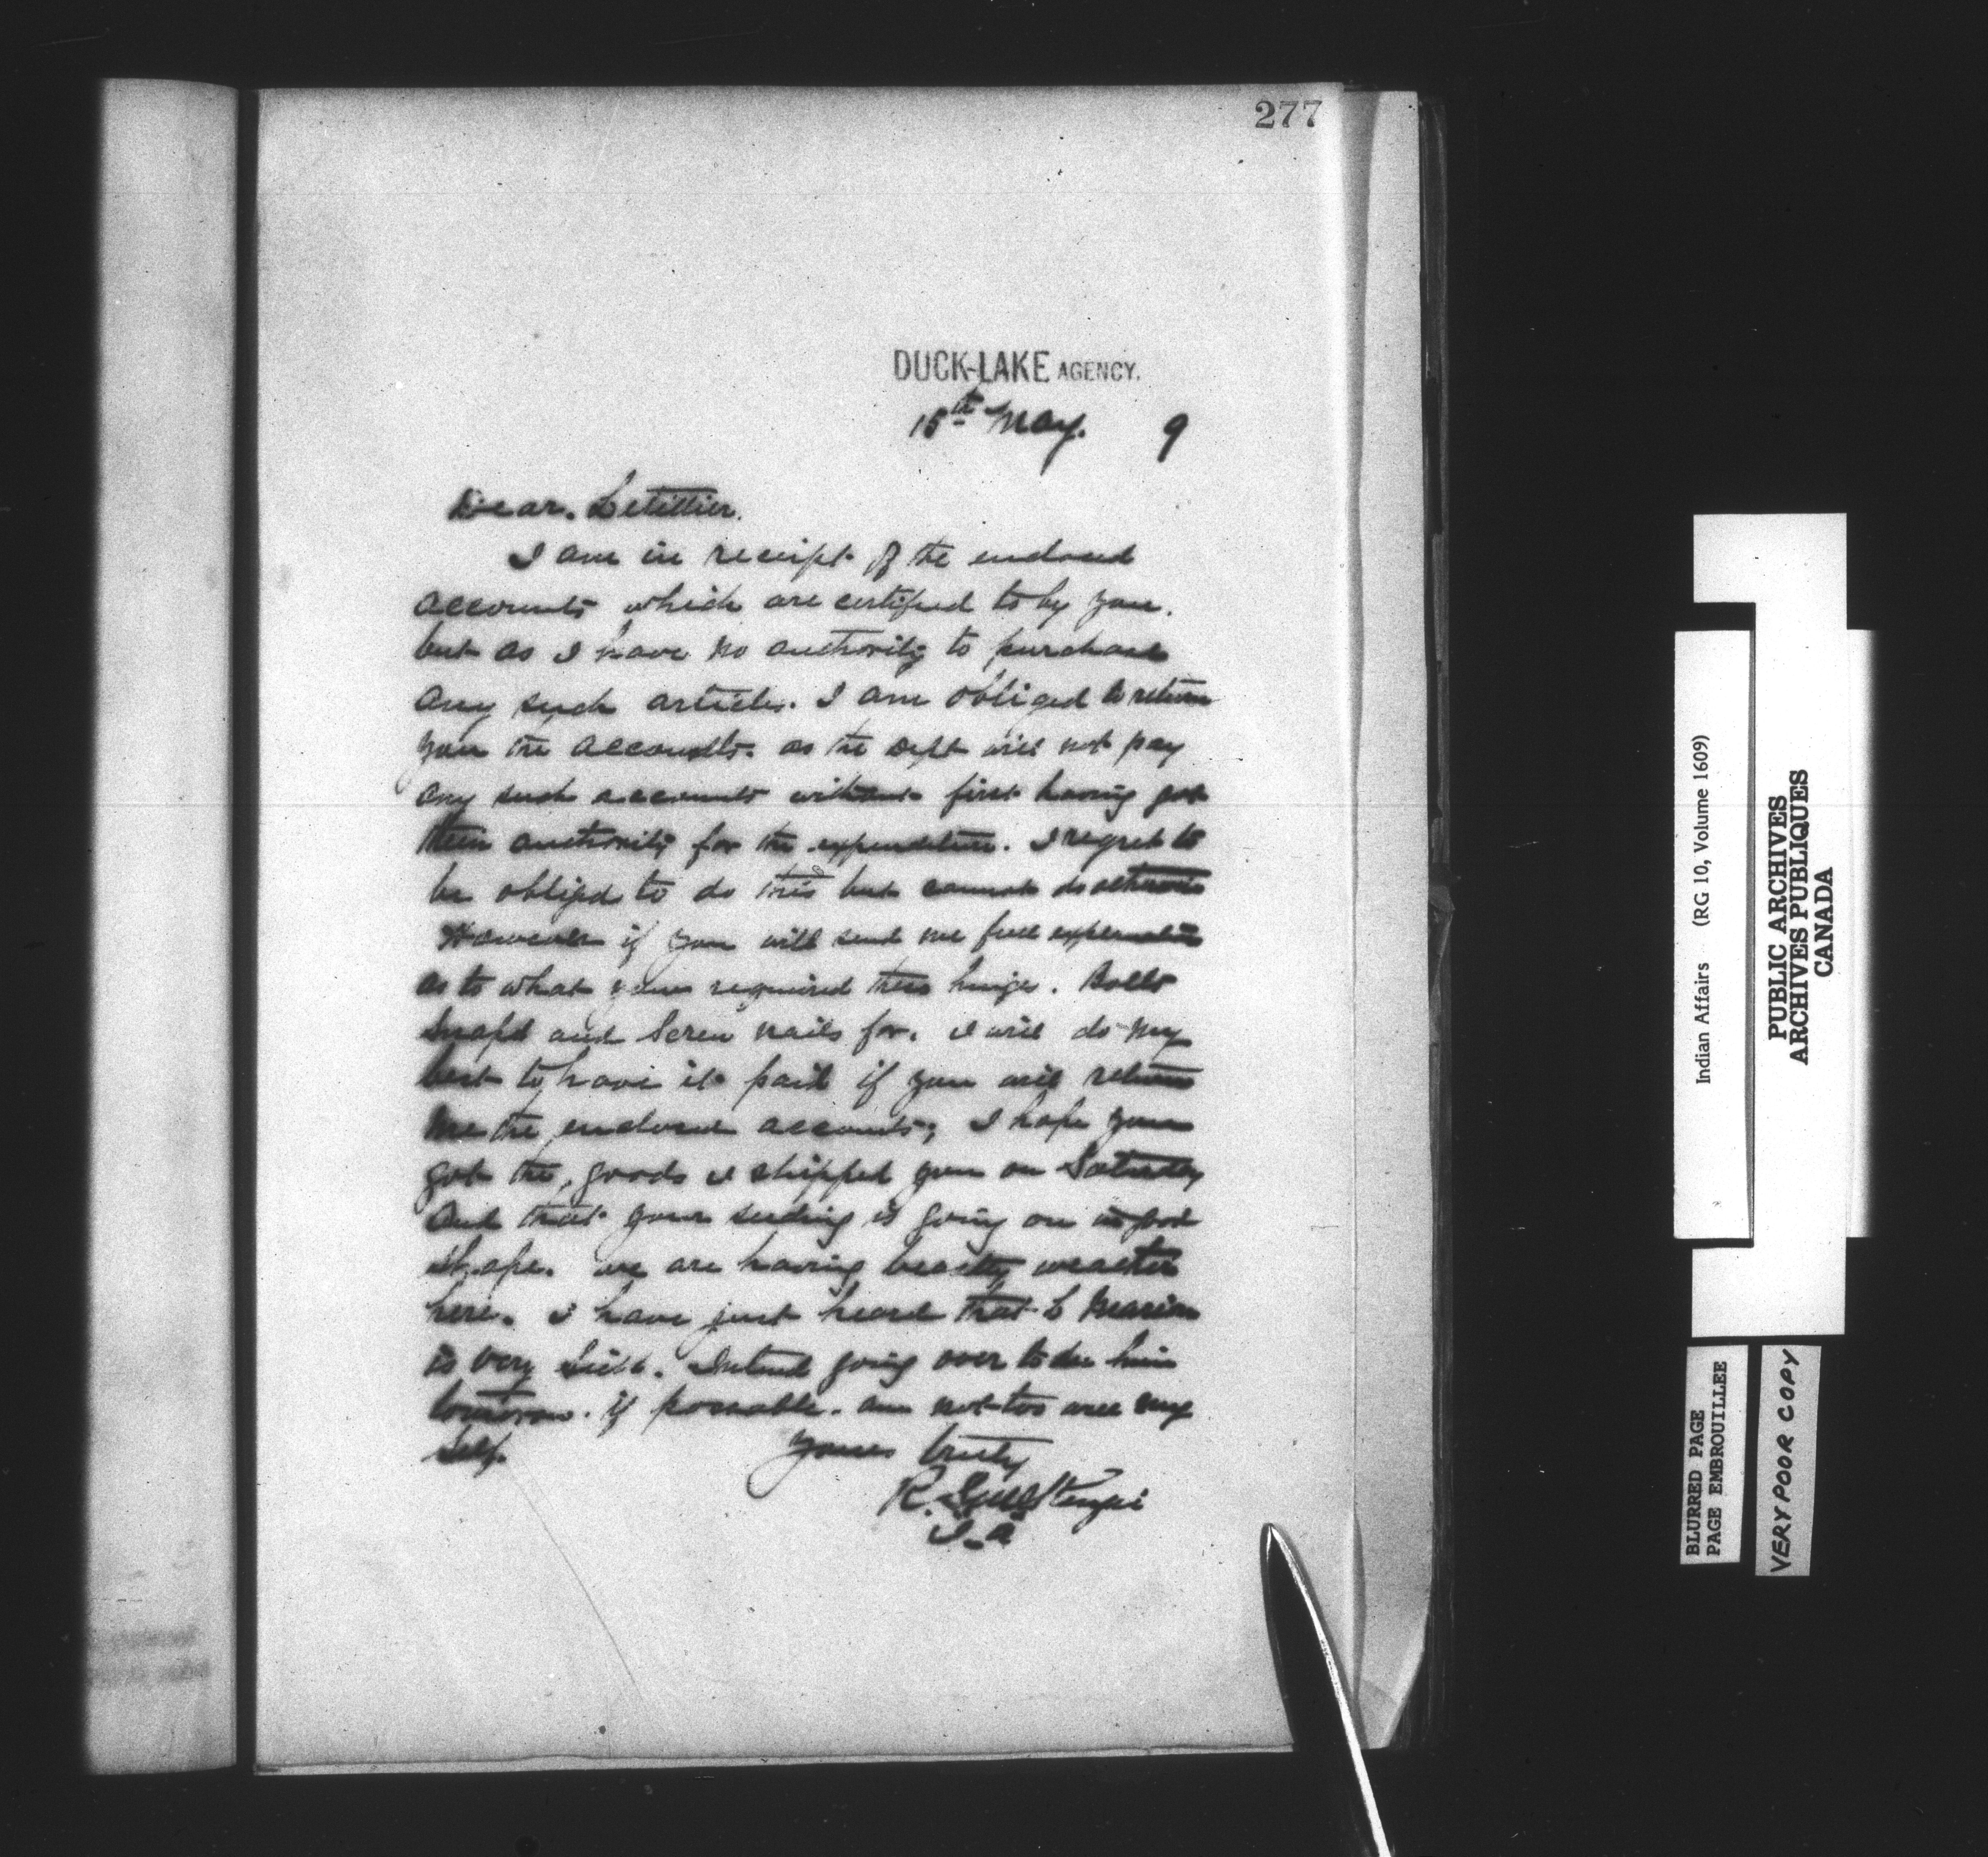 277
DUCK-LAKE AGENCY.
15th May. 9
Dear. Letellier.
I am in receipt of the enclosed
accounts which are certified to by you.
but as I have no authority to purchase
any such articles. I am obliged to return
you the accounts. as the Dept will not pay
any such accounts without first having got
their authority for the expenditure. I regret to
be obliged to do this but cannot do otherwise
However if you will send me full explanation
as to what you required these hinges. Bolts
Snaps and Screw nails for. I will do my
best to have it paid if you will return
me the enclosed accounts; I hope you
got the goods I shipped you on Saturday
and that your seeding is going on in good
shape. we are having beastly weather
here. I have just heard that L Marion
is very sick. Intend going over to see him
tomorrow. if possable. am not too well my
self. Yours truly
R. S. McKenzie
I.A
Indian Affairs (RG 10, Volume 1609)
PUBLIC ARCHIVES
ARCHIVES PUBLIQUES
CANADA
BLURRED PAGE
PAGE EMBROUILLEE
VERY POOR COPY